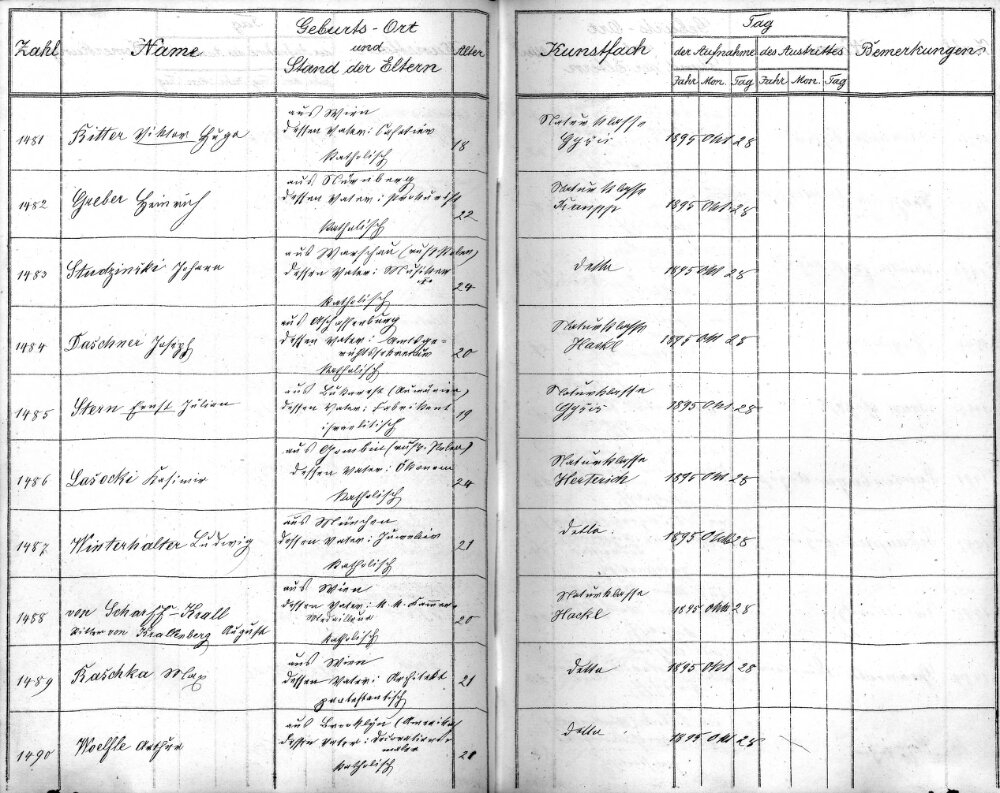 Zahl Name Geburts-Ort und Stand der Eltern Alter Kunstfach Tag Bemerkungen.
der Aufnahme des Austrittes
Jahr Mon. Tag Jahr Mon. Tag
aus Wien
1481 Ritter Viktor Hugo dessen Vater: Cafetier 18
Katholisch
Naturklasse
Gysis 1895 Okt 28
aus Nürnberg
1482 Greber Heinrich dessen Vater: Prokurist 22
Katholisch
Naturklasse
Raupp 1895 Okt 28
aus Warschau (russ. Polen)
1483 Studziński Johann dessen Vater: Musiker 24
Katholisch
detto 1895 Okt 28
aus Aschaffenburg
1484 Daschner Joseph dessen Vater: Amtsge-
richtssekretär 20
Katholisch
Naturklasse
Hackl 1895 Okt 28
aus Bukarest (Rumänien)
1485 Stern Ernst Julian dessen Vater: Fabrikant 19
israelitisch
Naturklasse
Gysis 1895 Okt 28
aus Gombin (russ. Polen)
1486 Lasocki Kasimir dessen Vater: Ökonom 24
Katholisch
Naturklasse
Herterich 1895 Okt 28
aus München
1487 Winterhalter Ludwig dessen Vater: Juwelier 21
Katholisch
detto 1895 Okt 28
aus Wien
1488 von Scharff-Krall dessen Vater: K. K. Kammer-
Ritter von Krallenberg August Medailleur 20
Katholisch
Naturklasse
Hackl 1895 Okt 28
aus Wien
1489 Kaschka Max dessen Vater: Architekt 21
protestantisch
detto 1895 Okt 28
aus Brooklyn (Amerika)
1490 Woelfle Arthur dessen Vater: Dekorations-
maler
Katholisch
detto 1895 Okt 28